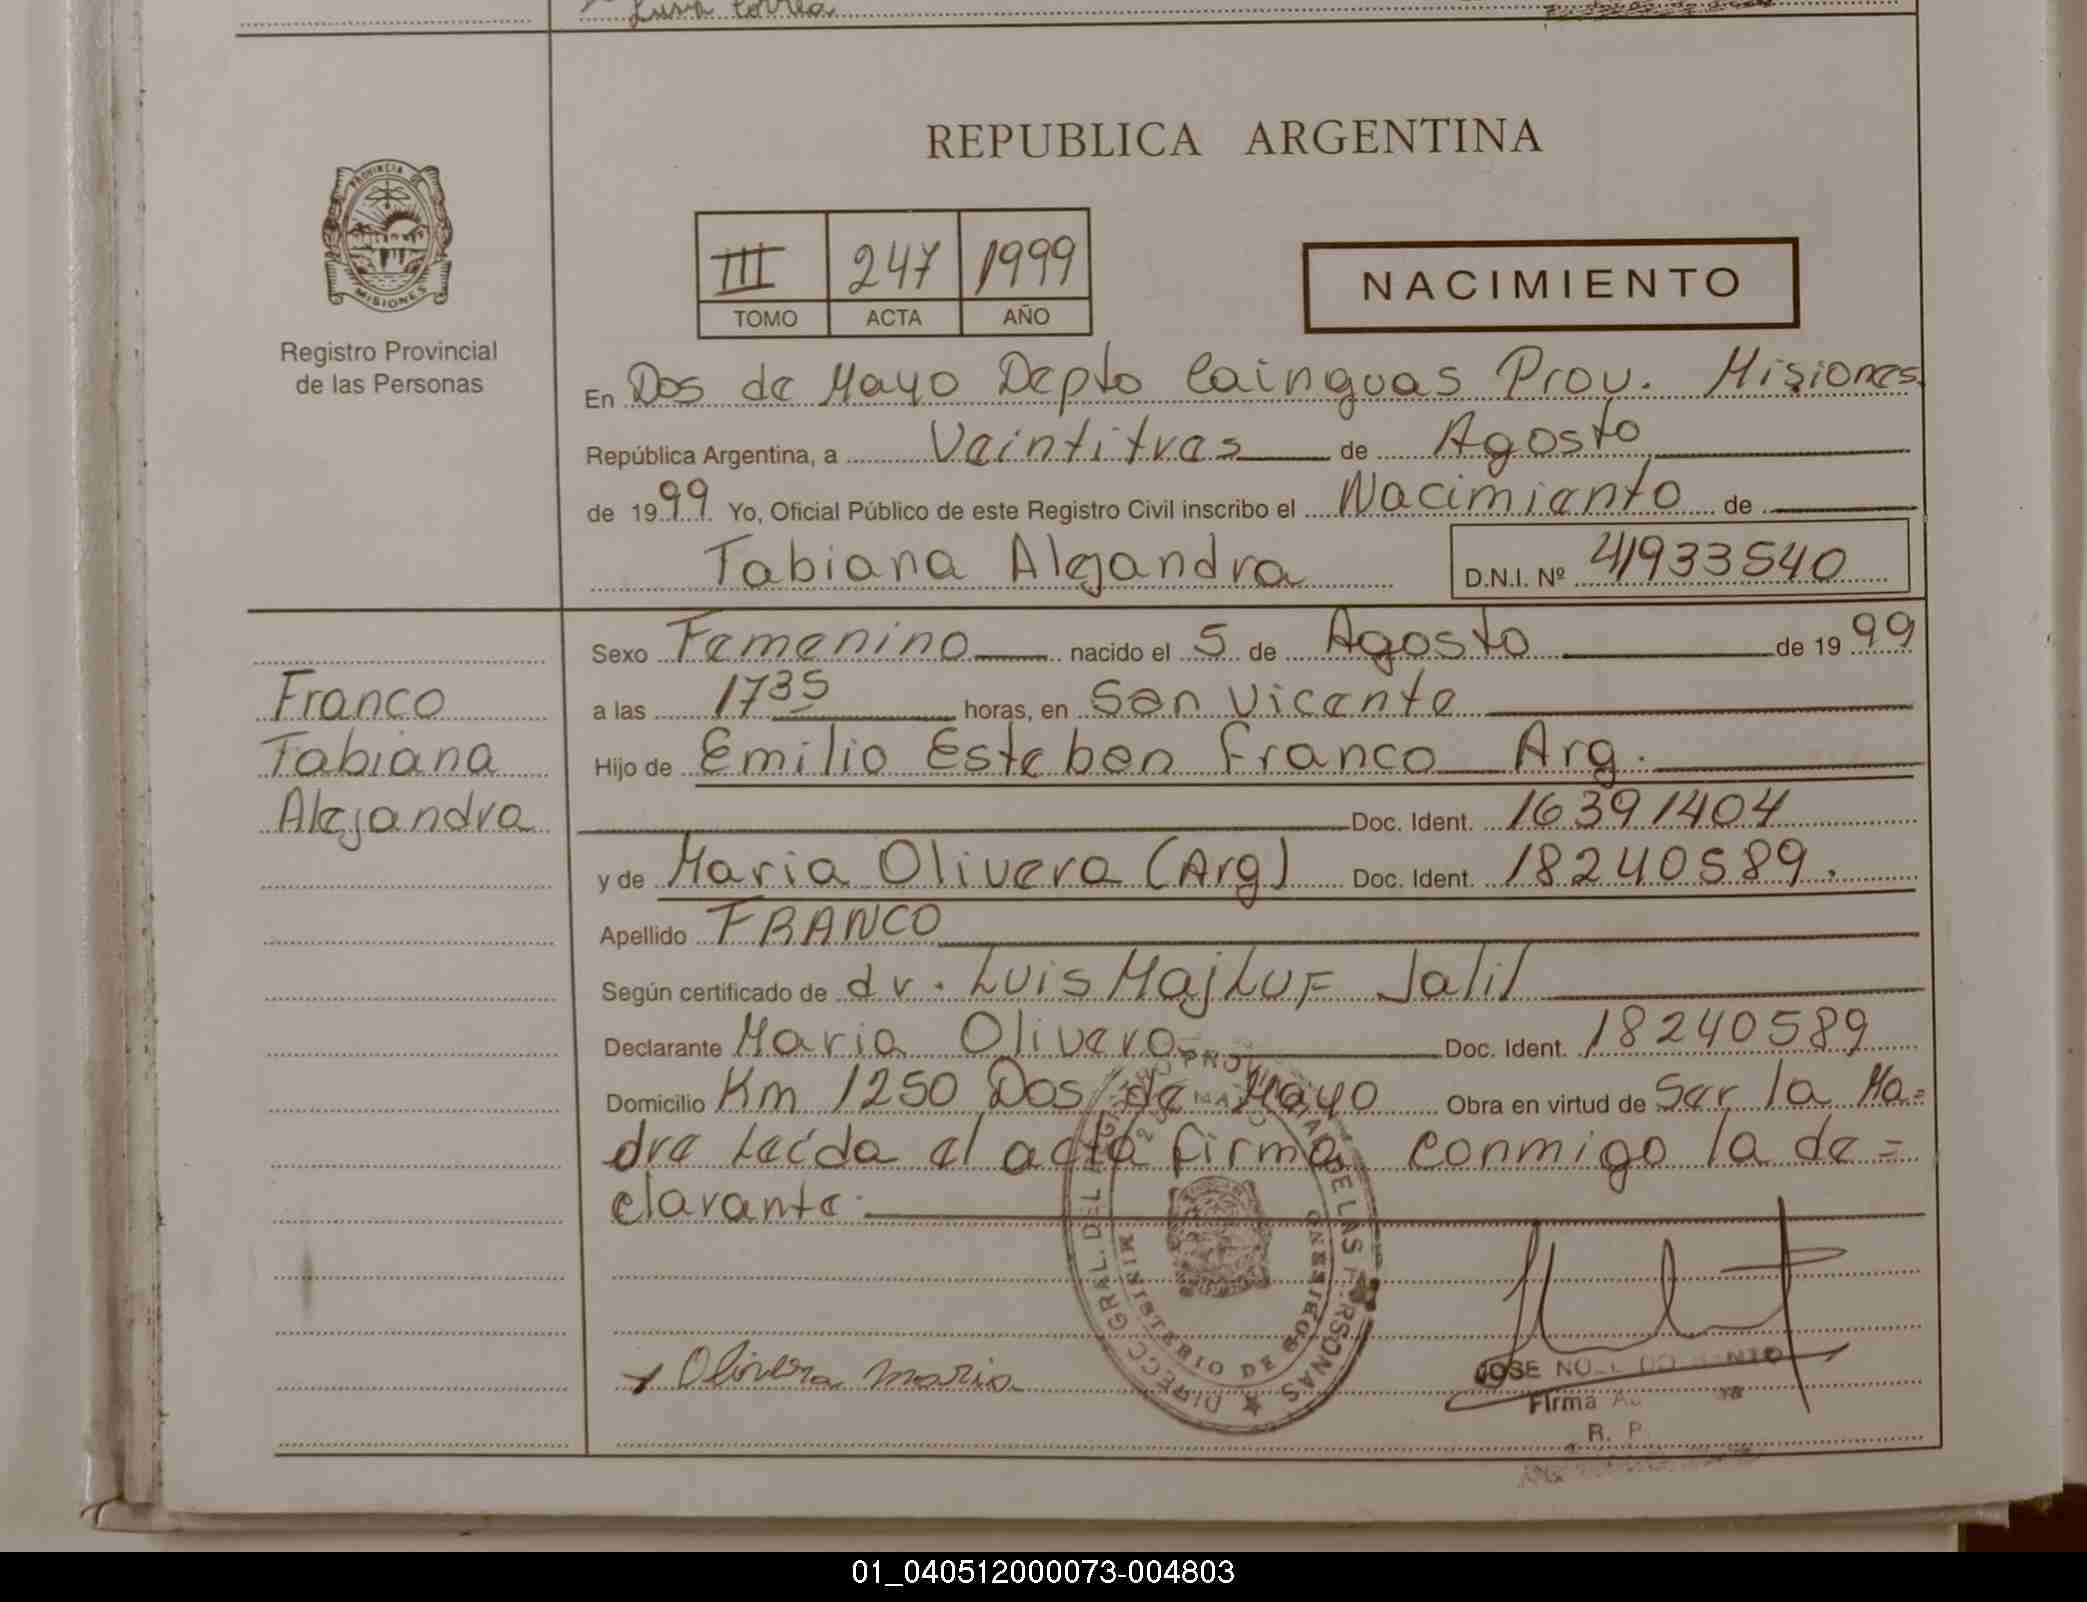 Luisa Correa
REPUBLICA ARGENTINA
PROVINCIA DE
MISIONES
Registro Provincial
de las Personas
III 247 1999
TOMO ACTA AÑO
NACIMIENTO
En Dos de Mayo Depto Cainguas Prov. Misiones
República Argentina, a Veintitres de Agosto
de 1999 Yo, Oficial Público de este Registro Civil inscribo el Nacimiento de
Fabiana Alejandra D.N.I. Nº 41933540
Sexo Femenino nacido el 5 de Agosto de 1999
a las 1735 horas, en San Vicente
Hijo de Emilio Esteban Franco Arg.
Doc. Ident. 16391404
y de Maria Olivera (Arg) Doc. Ident. 18240589.
Apellido FRANCO
Según certificado de dr. Luis Majluf Jalil
Declarante Maria Olivera Doc. Ident. 18240589
Domicilio Km 1250 Dos de Mayo Obra en virtud de Ser la Ma=
dre Leída el acta firma conmigo la de=
clarante.
Franco
Fabiana
Alejandra
Olivera Maria
DIRECC. GRAL. DEL REGISTRO PROVINCIAL DE LAS PERSONAS
MINISTERIO DE GOBIERNO
MISIONES
JOSE
Firma
R. P.
01_040512000073-004803